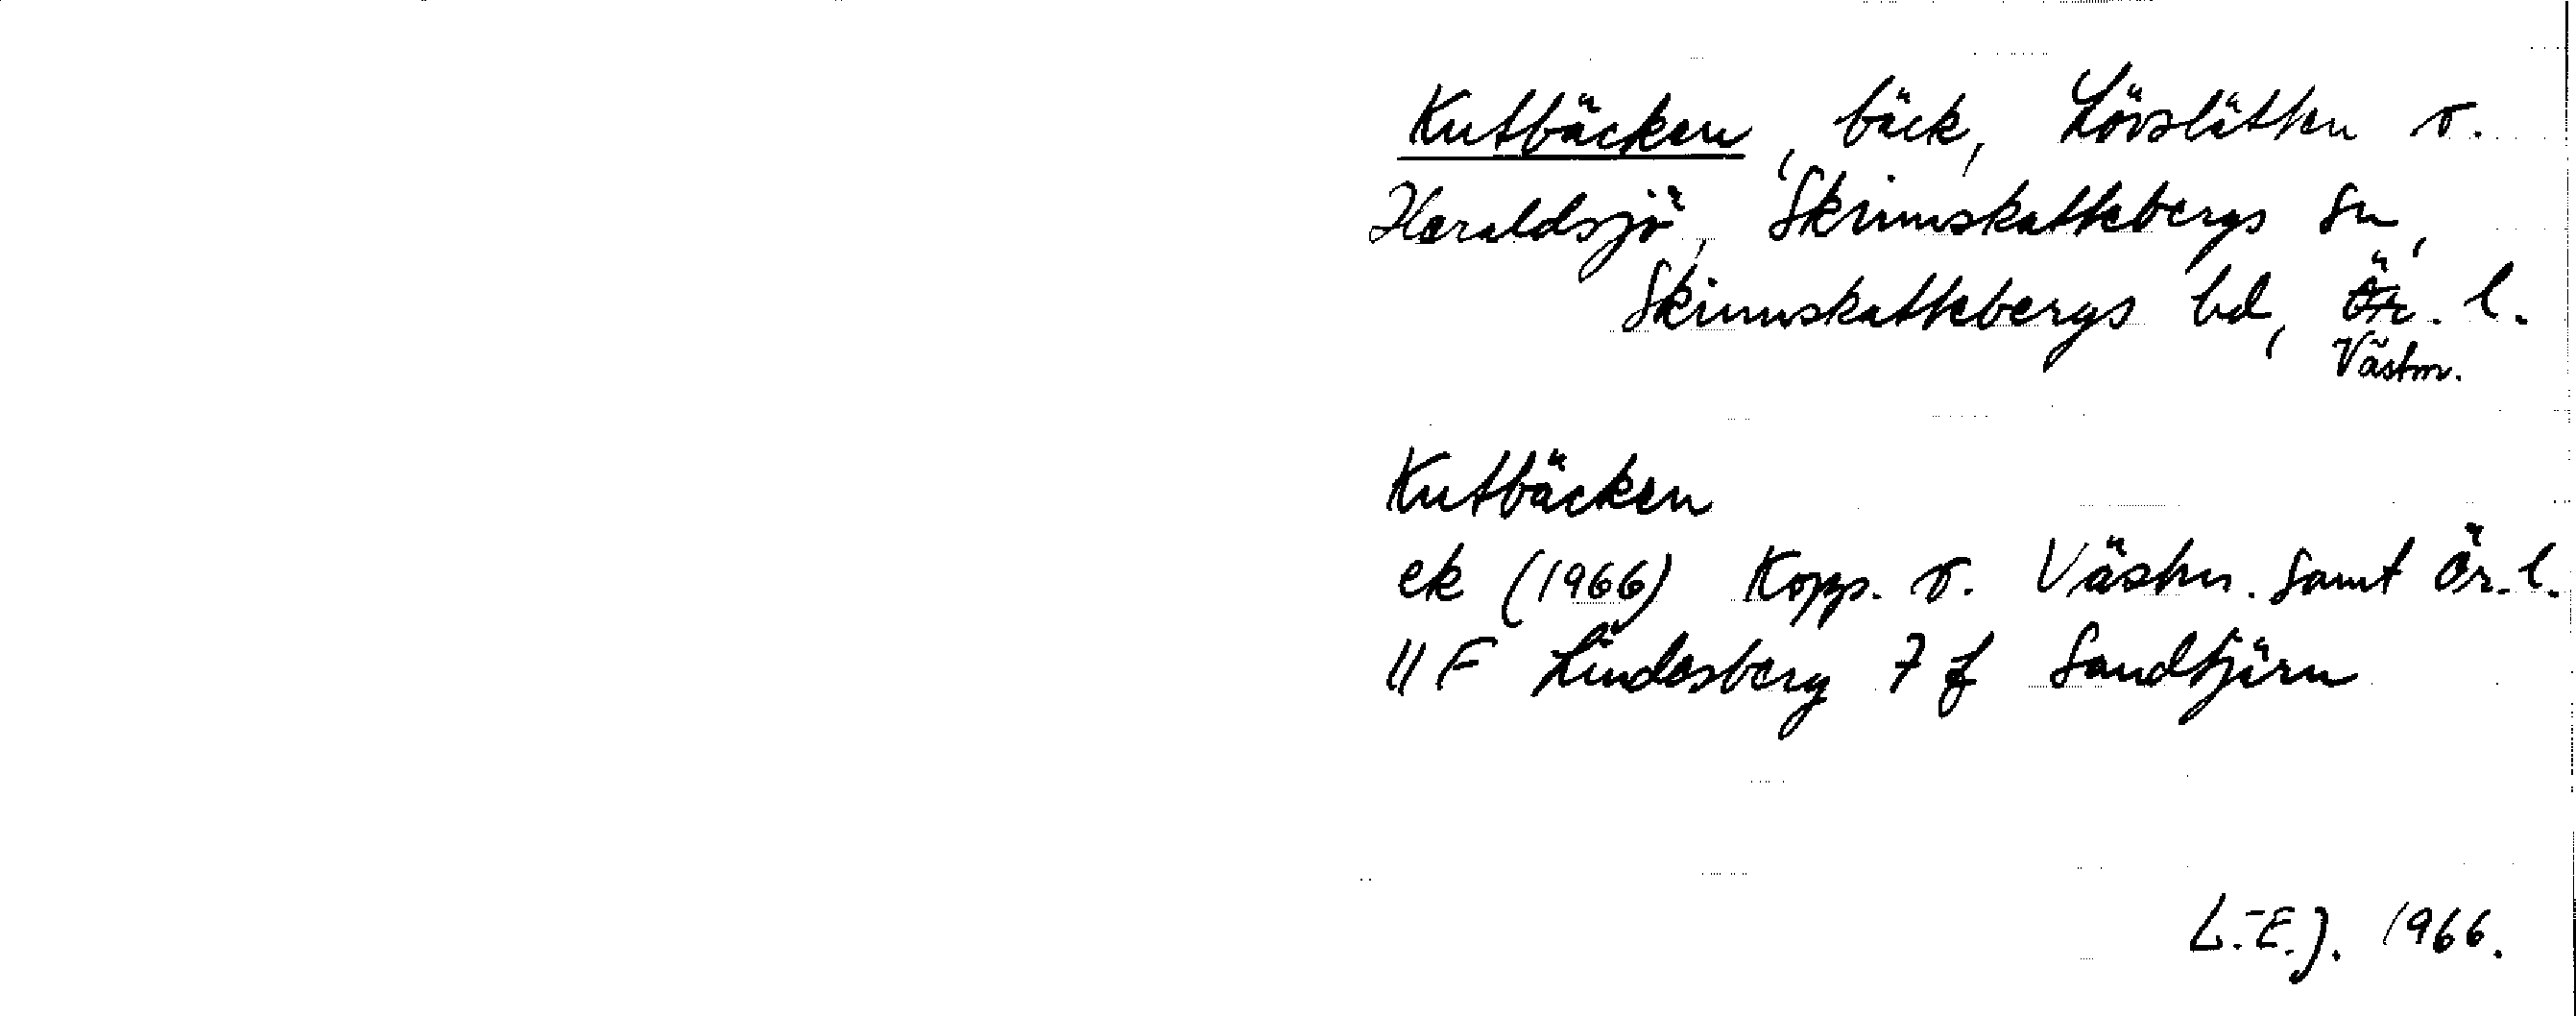 Kutbäcken, bäck, Lövslätten o.
Haraldsjö, Skinnskattebergs sn,
Skinnskattebergs bd, Ör. l.
Västm.
Kutbäcken
ek (1966) Kopp. o. Västm. samt Ör. l.
11 F Lindesberg 7 f Sandtjärn
L.-E.J. 1966.